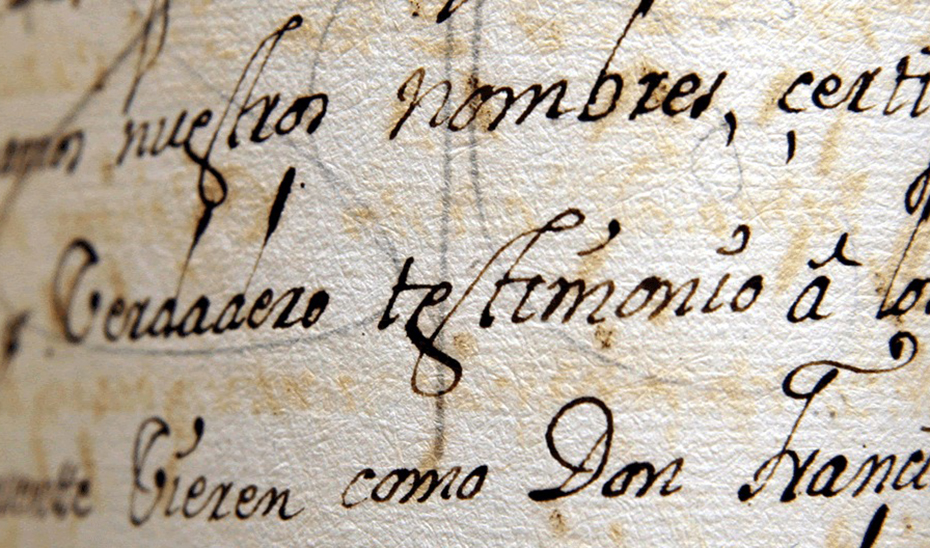 nuestros nombres, çerti
Verdadero testimonio â lo
Vieren como Don Franci